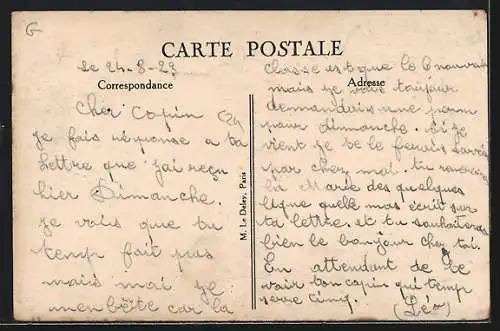 G
CARTE POSTALE
Correspondance
Adresse
le 24-8-23
Cher Copin
je fais réponse a ta
lettre que j'ai reçu
hier Dimanche.
je vais que tu
temp fait pas
mais mai je
m'enbête car la
M. Le Deley, Paris
Classe est que le 6 nouvais
mais je vais toujour
demandais une perm
pour dimanche. si je
vient je te le ferais savoir
par chez mai. tu
la Marie des quelques
ligne quelle mas écrit sur
ta lettre. et tu souhaiteras
bien le bonjour chez tai.
En attendant de te
vair ton copin qui temp
serre cinq. (Léo)